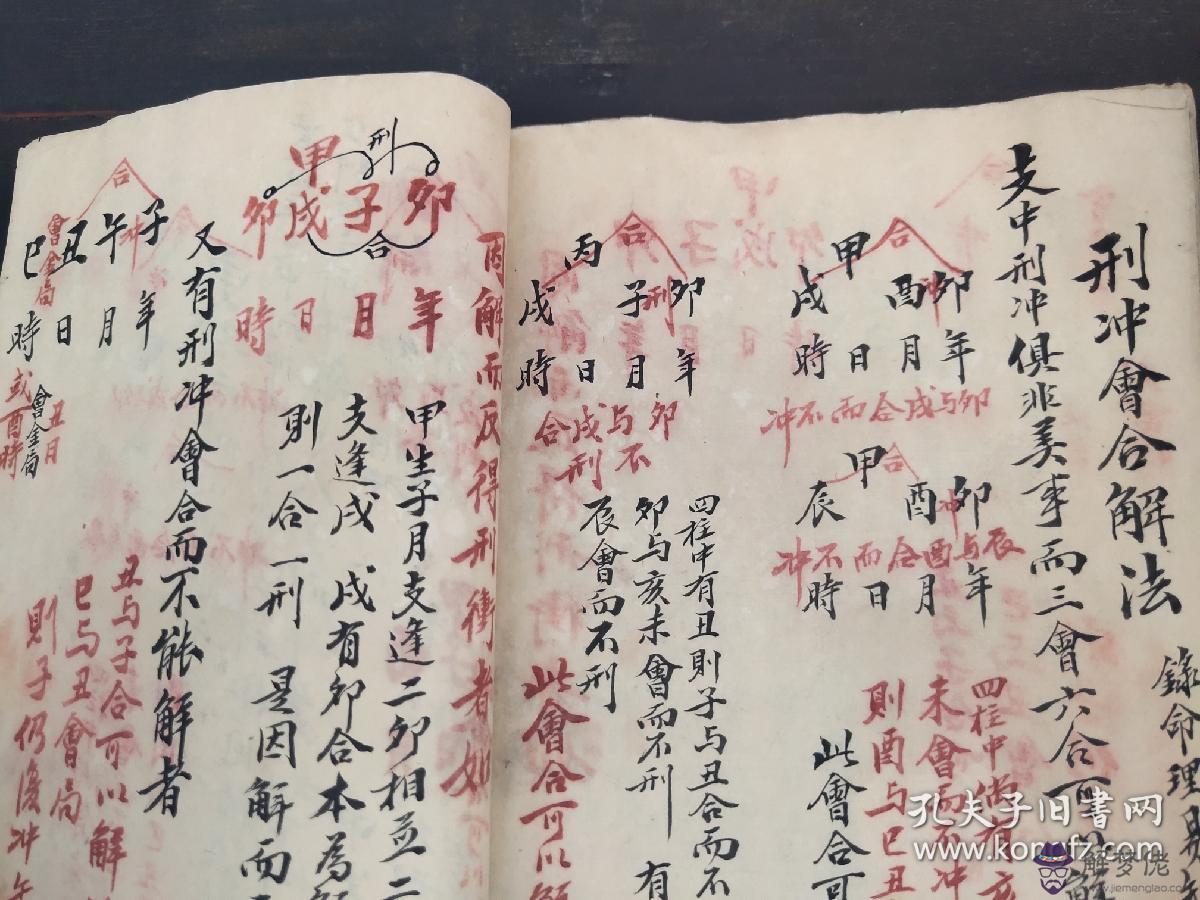 刑冲會合解法
錄命理易
支中刑冲俱非美事而三會六合可以解
合
冲
卯年
酉月
甲日
戌時
卯与戌合而不冲
合
冲
卯年
酉月
甲日
辰時
辰与酉合而不冲
四柱中尚有亥
未會局不冲
則酉与巳丑
此會合可
合
刑
卯年
子月
丙日
戌時
卯与戌合
不刑
四柱中有丑則子与丑合而不
卯与亥未會而不刑 有
辰會而不刑
此會合可以解
因解而反得刑衝者如
刑
合
卯年
子日
甲
戌日
卯時
甲生子月支逢二卯相並二
支逢戌 戌有卯合本為解
則一合一刑 是因解而
又有刑冲會合而不能解者
合
冲
子年
午月
丑日
巳時
會金局
丑月
會金局
或酉時
丑与子合可以解
巳与丑會局
則子仍復冲午
孔夫子旧书网
www.kongfz.com
解梦佬
www.jiemenglao.com